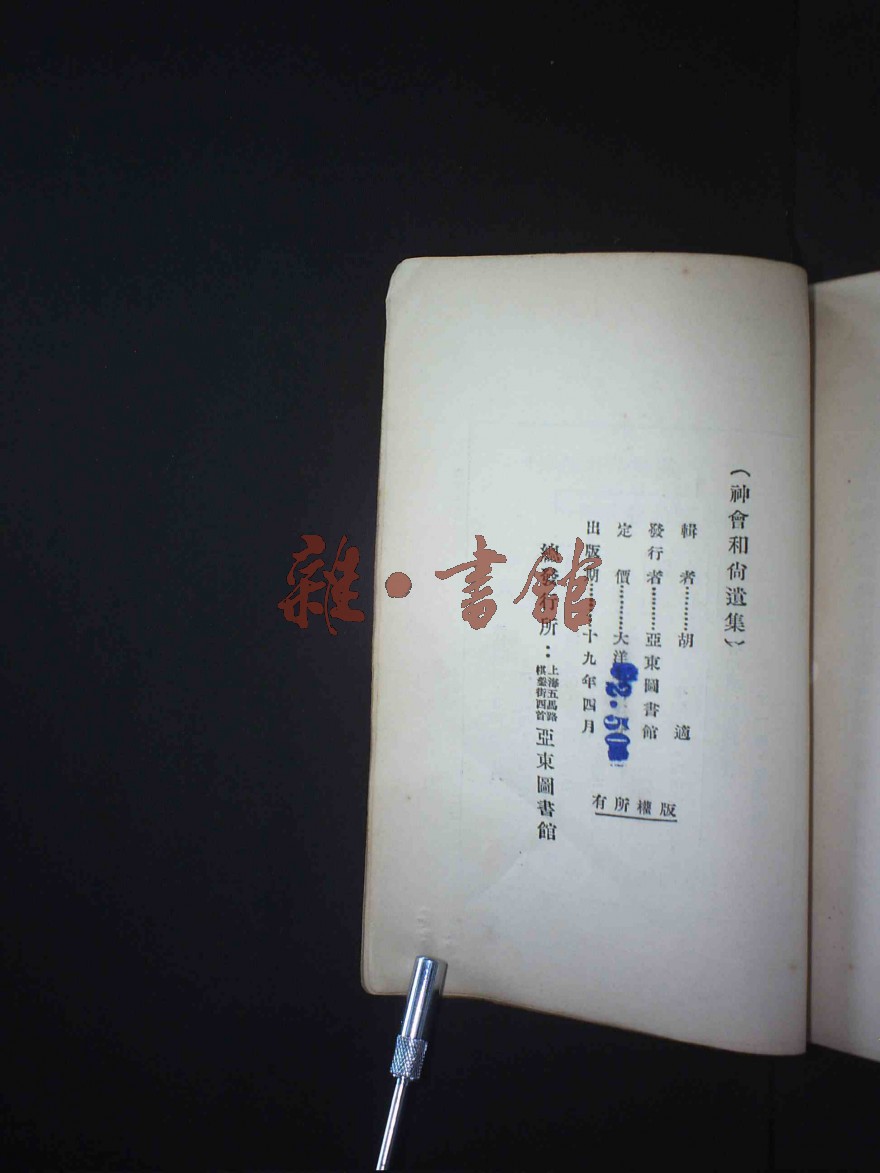 （神會和尙遺集）
輯者………胡適
發行者………亞東圖書館
定價………大洋
$2.50
出版期……十九年四月
總發行所：上海五馬路棋盤街西首亞東圖書館
版權所有
雜·書館